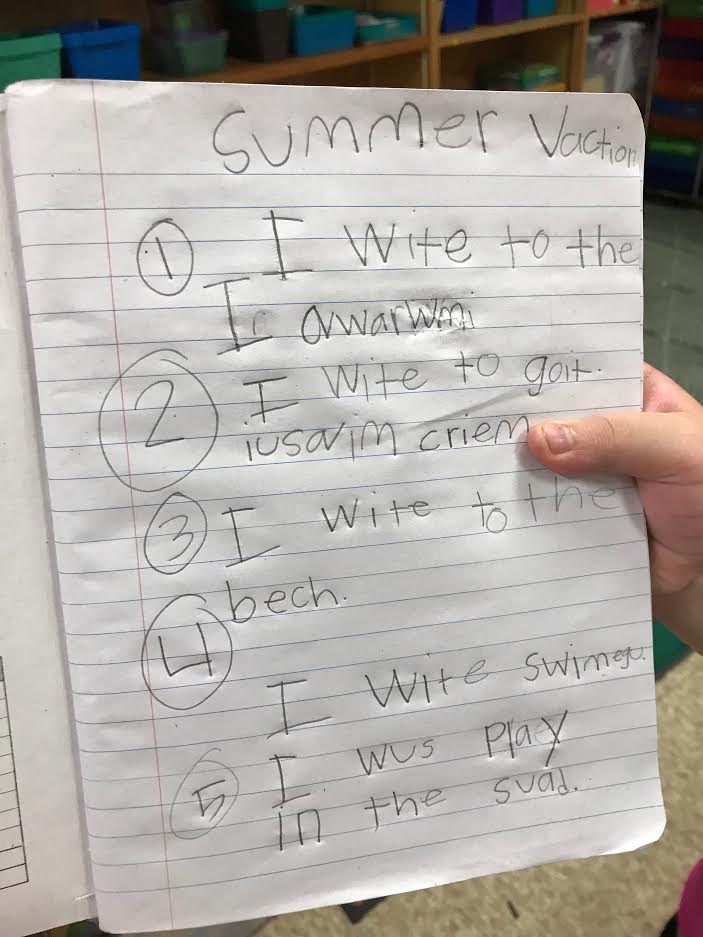 Summer Vaction
1 I wite to the
I
2 I wite to goit.
iusaim criem
3 I wite to the
bech.
4
I wite swimegu.
5 I wus Play
in the suad.